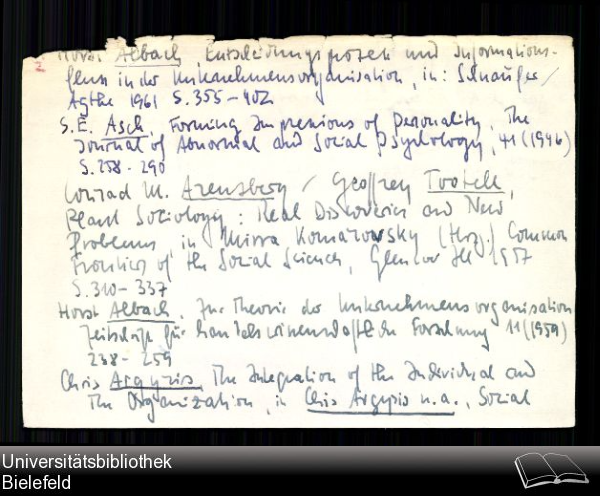 2
Horst Albach, Entscheidungsprozeß und Informations-
fluss in der Unternehmensorganisation, in: Schnaufer/
Agthe 1961 S. 355-402
S. E. Asch, Forming Impressions of Personality, The
Journal of Abnormal and Social Psychology, 41 (1946)
S. 258-290
Conrad M. Arensberg / Geoffrey Tootell,
Plant Sociology: Real Discoveries and New
Problems, in Mirra Komarowsky (Hrg.) Common
Frontiers of the Social Sciences, Glencoe Ill 1957
S. 310-337
Horst Albach, Zur Theorie der Unternehmensorganisation
Zeitschrift für handelswissenschaftliche Forschung 11 (1959)
238-259
Chris Argyris, The Integration of the Individual and
the Organization, in Chris Argyris u.a., Social
Universitätsbibliothek
Bielefeld